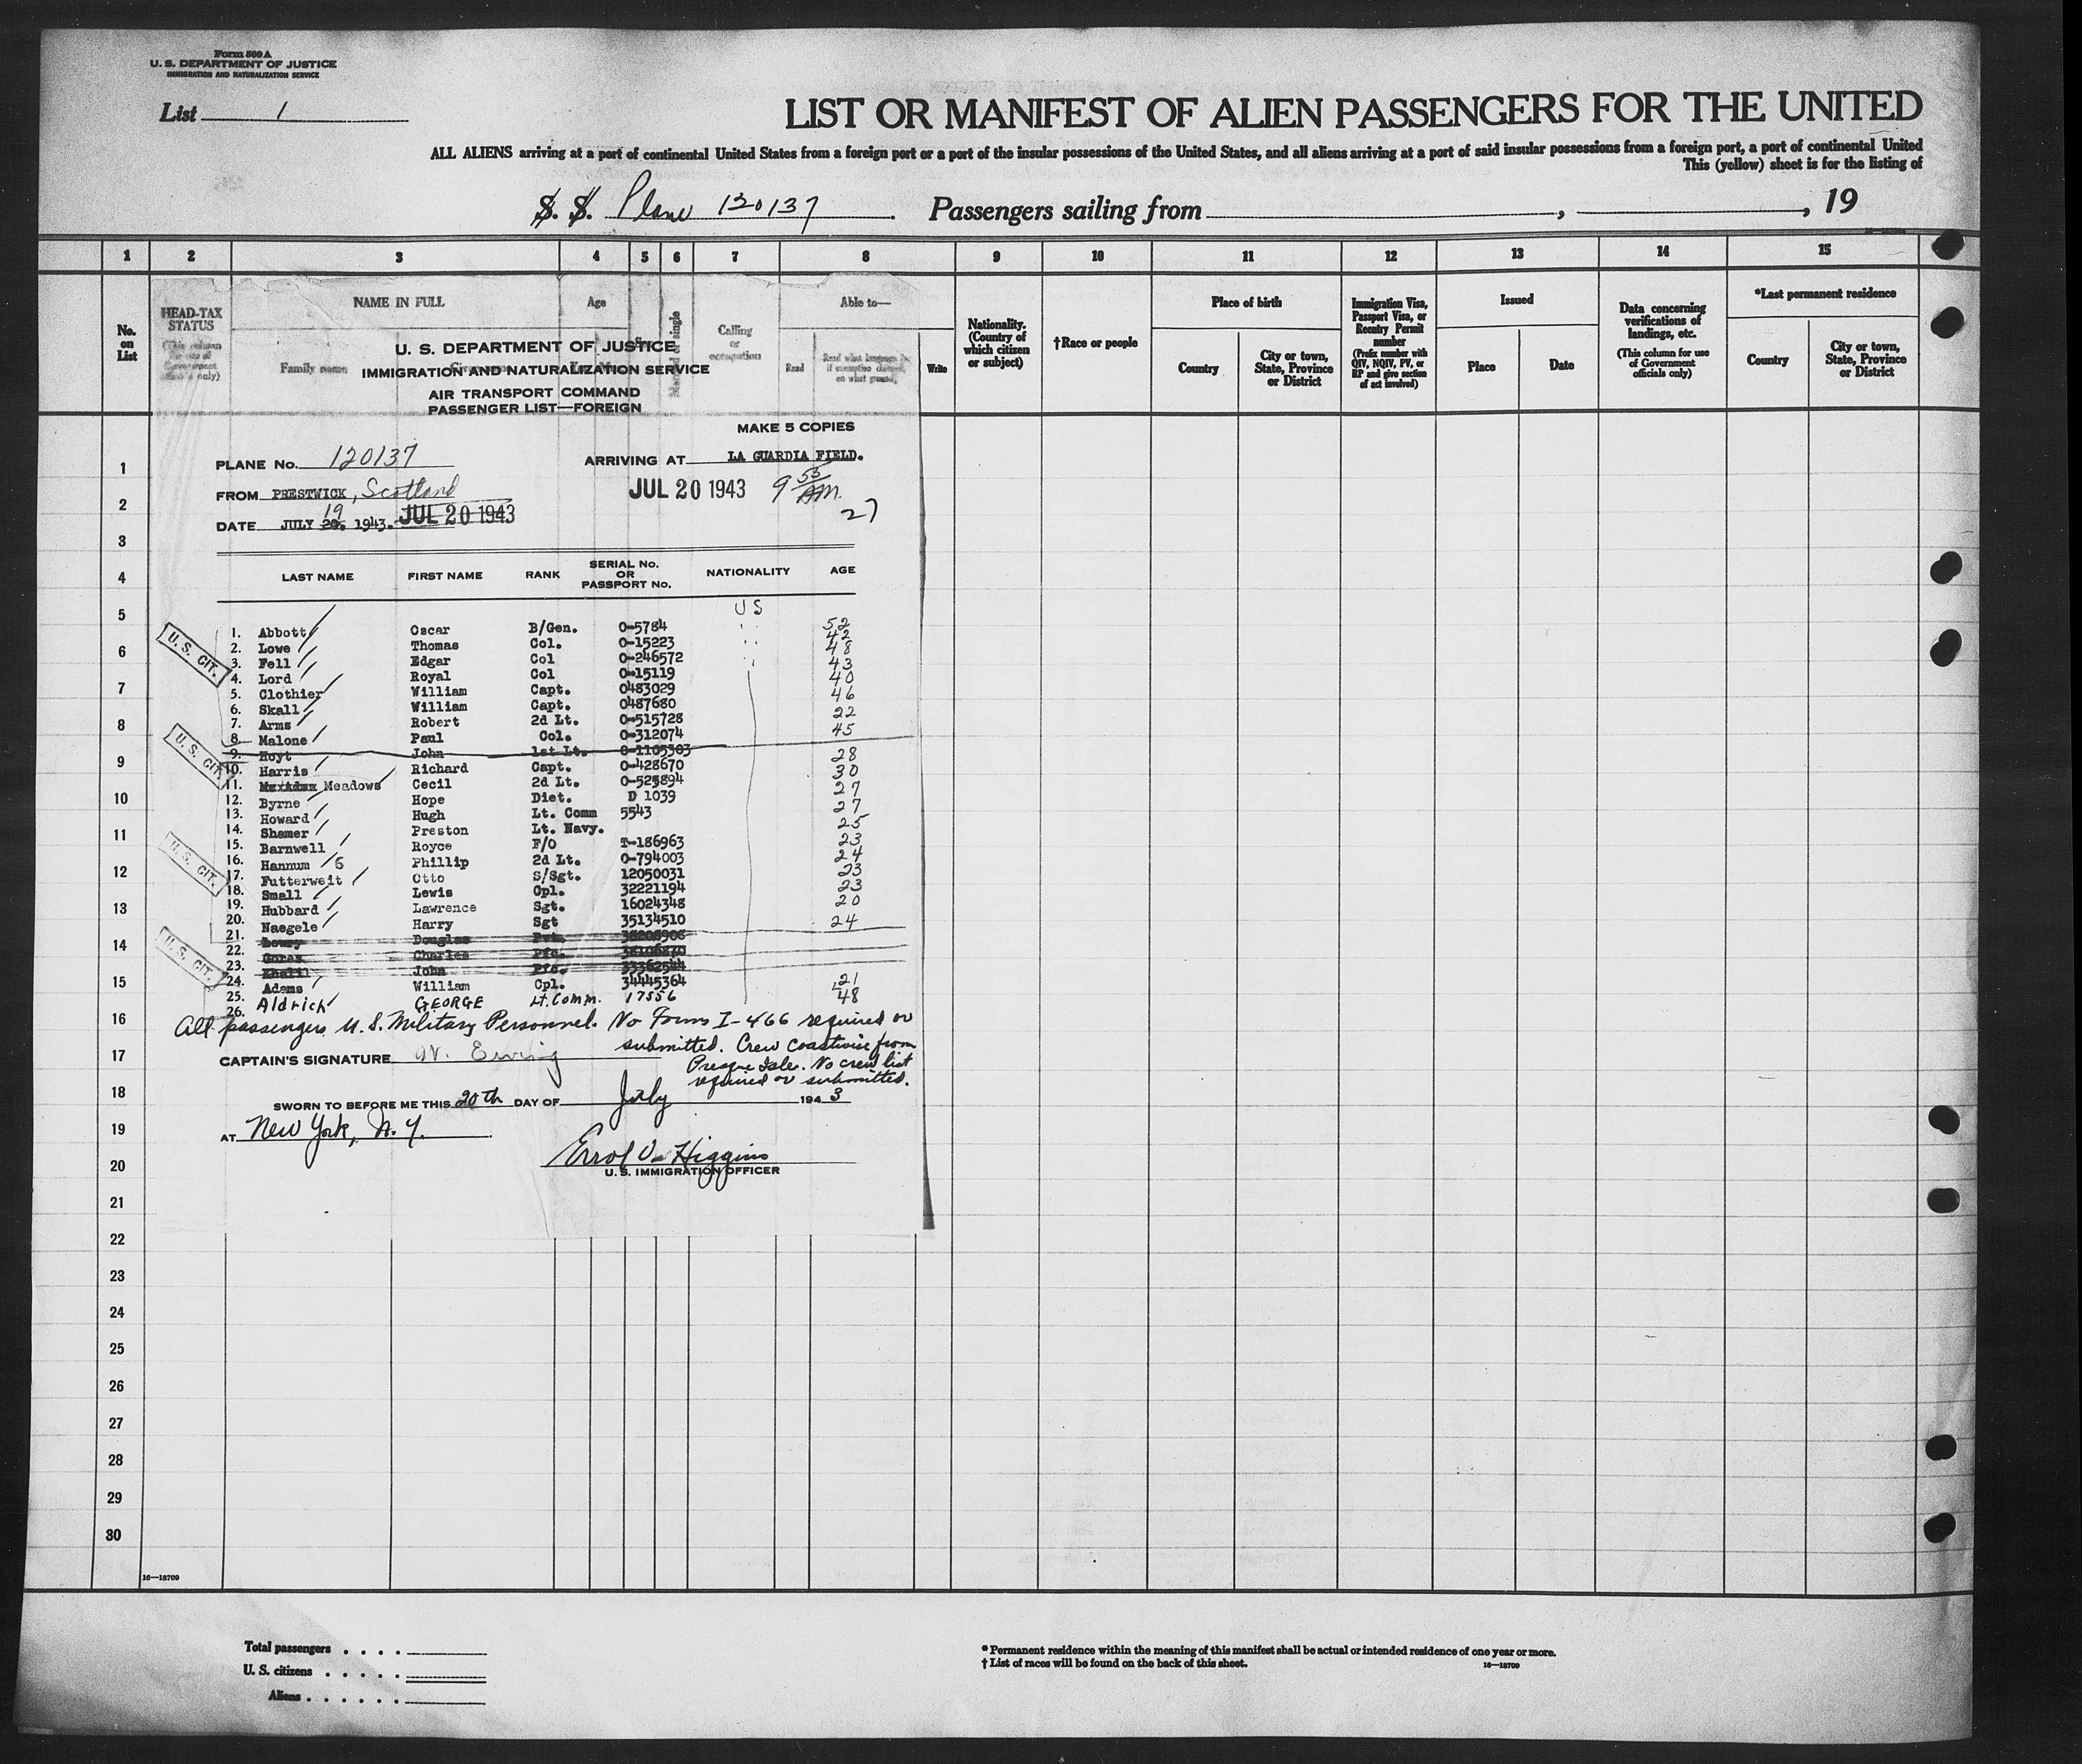 Form 500 A
U. S. DEPARTMENT OF JUSTICE
IMMIGRATION AND NATURALIZATION SERVICE
List 1
LIST OR MANIFEST OF ALIEN PASSENGERS FOR THE UNITED
ALL ALIENS arriving at a port of continental United States from a foreign port or a port of the insular possessions of the United States, and all aliens arriving at a port of said insular possessions from a foreign port, a port of continental United
This (yellow) sheet is for the listing of
S. S. Plane 120137. Passengers sailing from , , 19
1 2 3 4 5 6 7 8 9 10 11 12 13 14 15
No. on List
HEAD-TAX STATUS
NAME IN FULL
Family name
Age
Calling or occupation
Able to—
Read
Read what language
Write
Nationality. (Country of which citizen or subject)
†Race or people
Place of birth
Country
City or town, State, Province or District
Immigration Visa, Passport Visa, or Reentry Permit number
(Prefix number with QIV, NQIV, PV, or RP and give section of act involved)
Issued
Place
Date
Data concerning verifications of landings, etc.
(This column for use of Government officials only)
*Last permanent residence
Country
City or town, State, Province or District
U. S. DEPARTMENT OF JUSTICE
IMMIGRATION AND NATURALIZATION SERVICE
AIR TRANSPORT COMMAND
PASSENGER LIST—FOREIGN
MAKE 5 COPIES
PLANE No. 120137 ARRIVING AT LA GUARDIA FIELD.
FROM PRESTWICK, Scotland JUL 20 1943 9 55 AM.
27
DATE JULY 20. 19 1943. JUL 20 1943
LAST NAME FIRST NAME RANK SERIAL No. OR PASSPORT No. NATIONALITY AGE
US
1. Abbott Oscar B/Gen. 0-5784 52
2. Lowe Thomas Col. 0-15223 42
3. Fell Edgar Col 0-246572 48
4. Lord Royal Col 0-15119 43
5. Clothier William Capt. 0483029 40
6. Skall William Capt. 0487680 46
7. Arms Robert 2d Lt. 0-515728 22
8. Malone Paul Col. 0-312074 45
9. Hoyt John 1st Lt. 0-1105303
10. Harris Richard Capt. 0-428670 28
11. Meadows Cecil 2d Lt. 0-525894 30
12. Byrne Hope Diet. D 1039 27
13. Howard Hugh Lt. Comm 5543 27
14. Shamer Preston Lt. Navy. 25
15. Barnwell Royce F/O T-186963 23
16. Hannum G Phillip 2d Lt. 0-794003 24
17. Futterweit Otto S/Sgt. 12050031 23
18. Small Lewis Cpl. 32221194 23
19. Hubbard Lawrence Sgt. 16024348 20
20. Naegele Harry Sgt 35134510 24
21. Douglas
22. Charles Pfc.
23. John Pfc. 33362544
24. Adams William Cpl. 34445364 21
25. Aldrich GEORGE Lt. Comm. 17556 48
26.
U. S. CIT.
U. S. CIT.
U. S. CIT.
U. S. CIT.
All passengers U.S. Military Personnel. No Forms I-466 required or
submitted. Crew coastwise from
Presque Isle. No crew list
required or submitted.
CAPTAIN'S SIGNATURE W. Ewing
SWORN TO BEFORE ME THIS 20th DAY OF July 1943
AT New York, N.Y.
Errol V. Higgins
U. S. IMMIGRATION OFFICER
1
2
3
4
5
6
7
8
9
10
11
12
13
14
15
16
17
18
19
20
21
22
23
24
25
26
27
28
29
30
16—18709
Total passengers . . . .
U. S. citizens . . . . .
Aliens . . . . . .
* Permanent residence within the meaning of this manifest shall be actual or intended residence of one year or more.
† List of races will be found on the back of this sheet.
16—18709